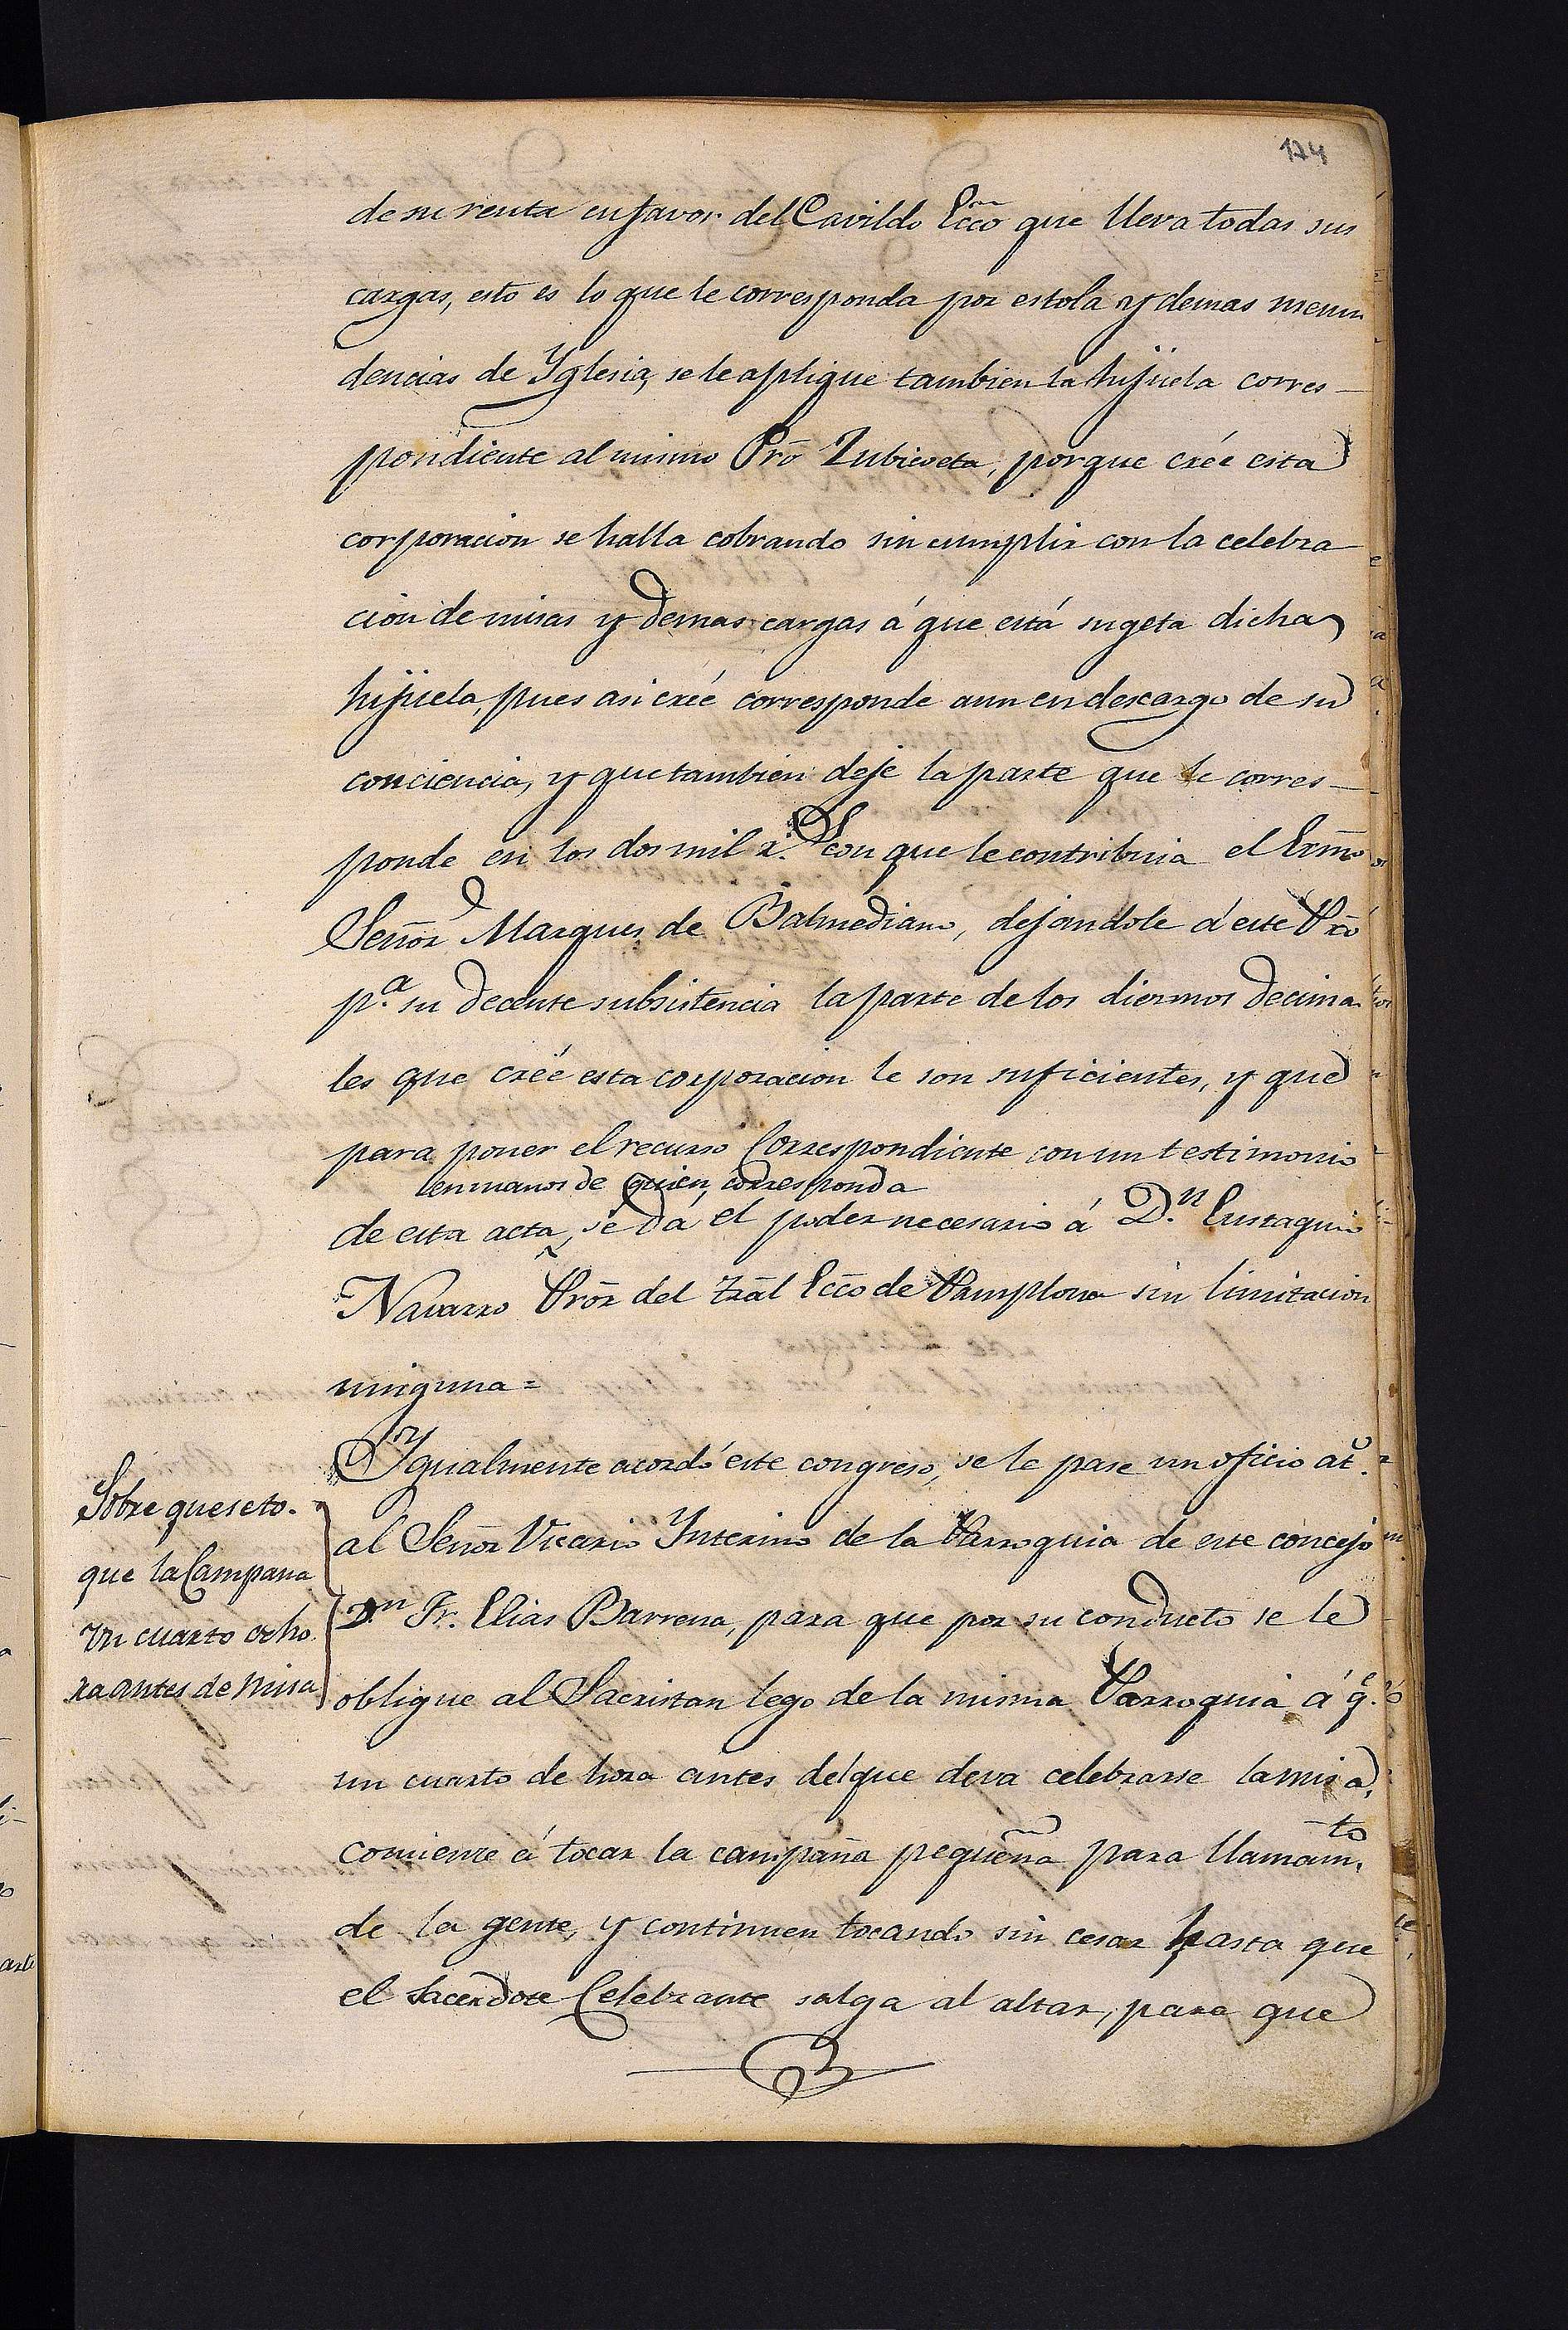 174
de su renta en favor del Cavildo Ecc̃o que lleva todas sus
cargas, esto es lo que le corresponda por estola y demas menu
dencias de Yglesia, se le aplique tambien la hijuela corres-
pondiente al mismo Pr̃o Zubicoeta, porque créé esta
corporacion se halla cobrando sin cumplir con la celebra
cion de misas y demas cargas á que está sugeta dicha
hijuela, pues asi créé corresponde aun en descargo de su
conciencia, y que tambien deje la parte que le corres-
ponde en los dos mil r.s con que le contribuia el Exm̃o
Señor Marques de Balmediano, dejandole á este Pr̃o
p.a su decente subsistencia la parte de los diezmos decima
les que créé esta corporacion le son suficientes, y que
para poner el recurso Correspondiente con un testimonio
en manos de quien corresponda
de esta acta, se dá el poder necesario á D.n Eustaquio
Navarro Prõr del Trãl Ecc̃o de Pamplona sin limitacion
ninguna=
Ygualmente acordó este congreso, se le pase un oficio at.o
al Señor Vicario Ynterino de la Parroquia de este concejo
D.n Fr. Elias Barrena, para que por su conducto se le
obligue al Sacristan lego de la misma Parroquia á q.e
un cuarto de hora antes del que deva celebrarse la misa,
comience á tocar la campaña pequeña para llamam.to
de la gente, y continuen tocando sin cesar hasta que
el Sacerdote Celebrante salga al altar, para que
Sobre que se to-
que la Campana
un cuarto de ho
ra antes de Misa